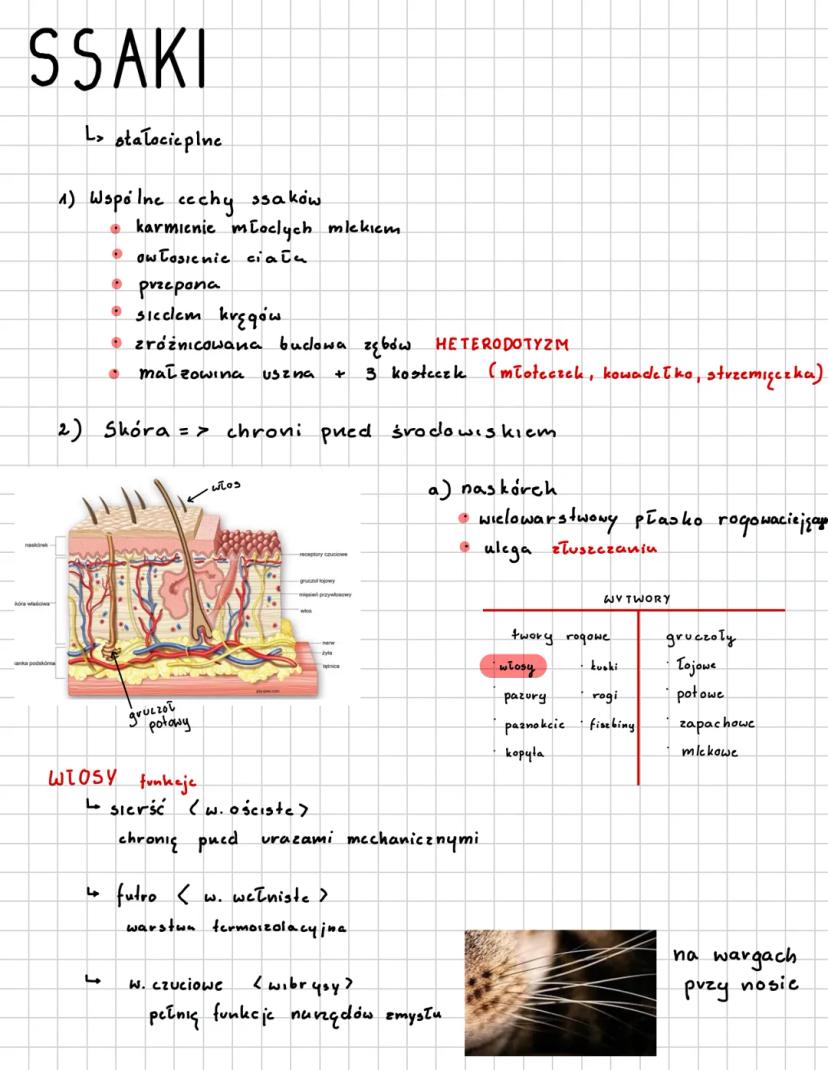 SSAKI
↳ stałocieplne
1) Wspólne cechy ssaków
• karmienie młodych mlekiem
• owłosienie ciała
• przepona
• siedem kręgów
• zróżnicowana budowa zębów HETERODOTYZM
• małżowina uszna + 3 kosteczk (młoteczek, kowadełko, strzemiączka)
2) Skóra => chroni przed środowiskiem
włos
naskórek
skóra właściwa
tkanka podskórna
receptory czuciowe
gruczoł łojowy
mięsień przywłosowy
włos
nerw
żyła
tętnica
gruczoł
potowy
a) naskórek
• wielowarstwowy płasko rogowaciejący
• ulega złuszczaniu
WYTWORY
twory rogowe
gruczoły
· włosy · łuski · łojowe
· pazury · rogi · potowe
· paznokcie · fiszbiny · zapachowe
· kopyta · mlekowe
WŁOSY funkcje
↳ sierść < w. ościste >
chronią przed urazami mechanicznymi
↳ futro < w. wełniste >
warstwa termoizolacyjna
↳ w. czuciowe < wibrysy >
pełnią funkcje narządów zmysłu
na wargach
przy nosie